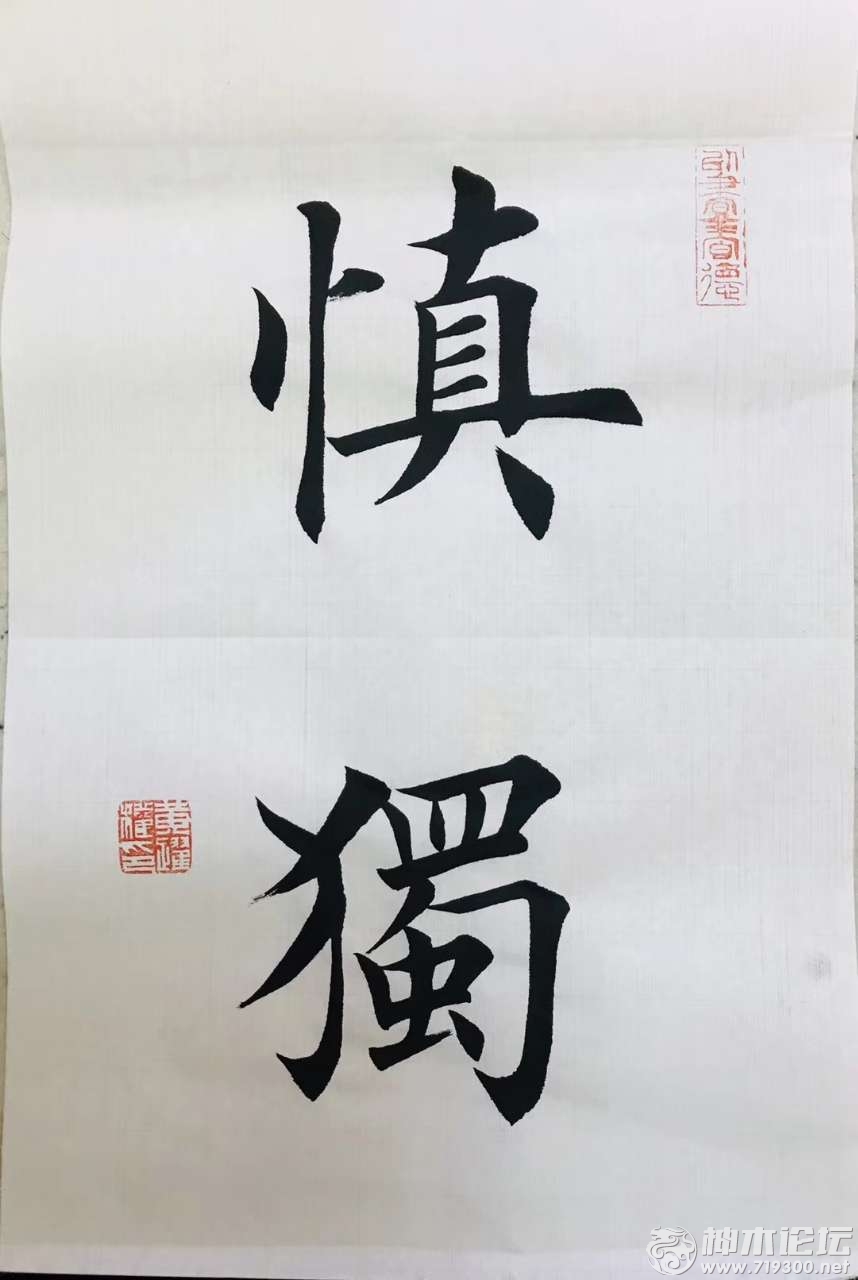 慎
獨
神木论坛
www.719300.net